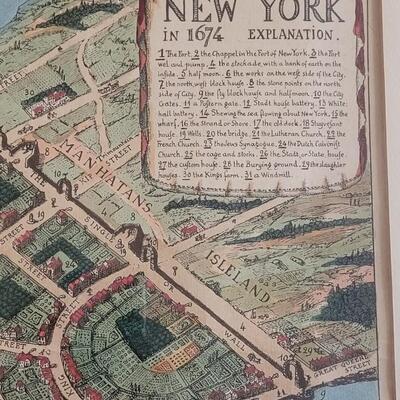 NEW YORK
in 1674 EXPLANATION.
1 The Fort. 2 the Chappel in the Fort of New York. 3 the Fort
wel and pump. 4 the stockade, with a bank of earth on the
inside. 5 half moon. 6 the works on the west side of the City.
7 the north west block house. 8 the stone points on the north
side of City. 9 the fly block house and half moon. 10 the City
Gates. 11 a Postern gate. 12 Stadt house battery. 13 White
hall battery. 14 Shewing the sea flowing about New York. 15 the
wharf. 16 the Strand or Shore. 17 the old dock. 18 Stuyvesant
house. 19 Wells. 20 the bridge. 21 the Lutheran Church. 22 the
French Church. 23 the Jews Synagogue. 24 the Dutch Calvinist
Church. 25 the cage and stocks. 26 the Stadt, or State, house.
27 the custom house. 28 the Burying ground. 29 the slaughter
houses. 30 the Kings farm. 31 a Windmill.
STREET
MANHATANS
ISLELAND
SINGLE
STREET
STREET
OR
WALL
STREET
KING
GREAT QUEEN
STREET